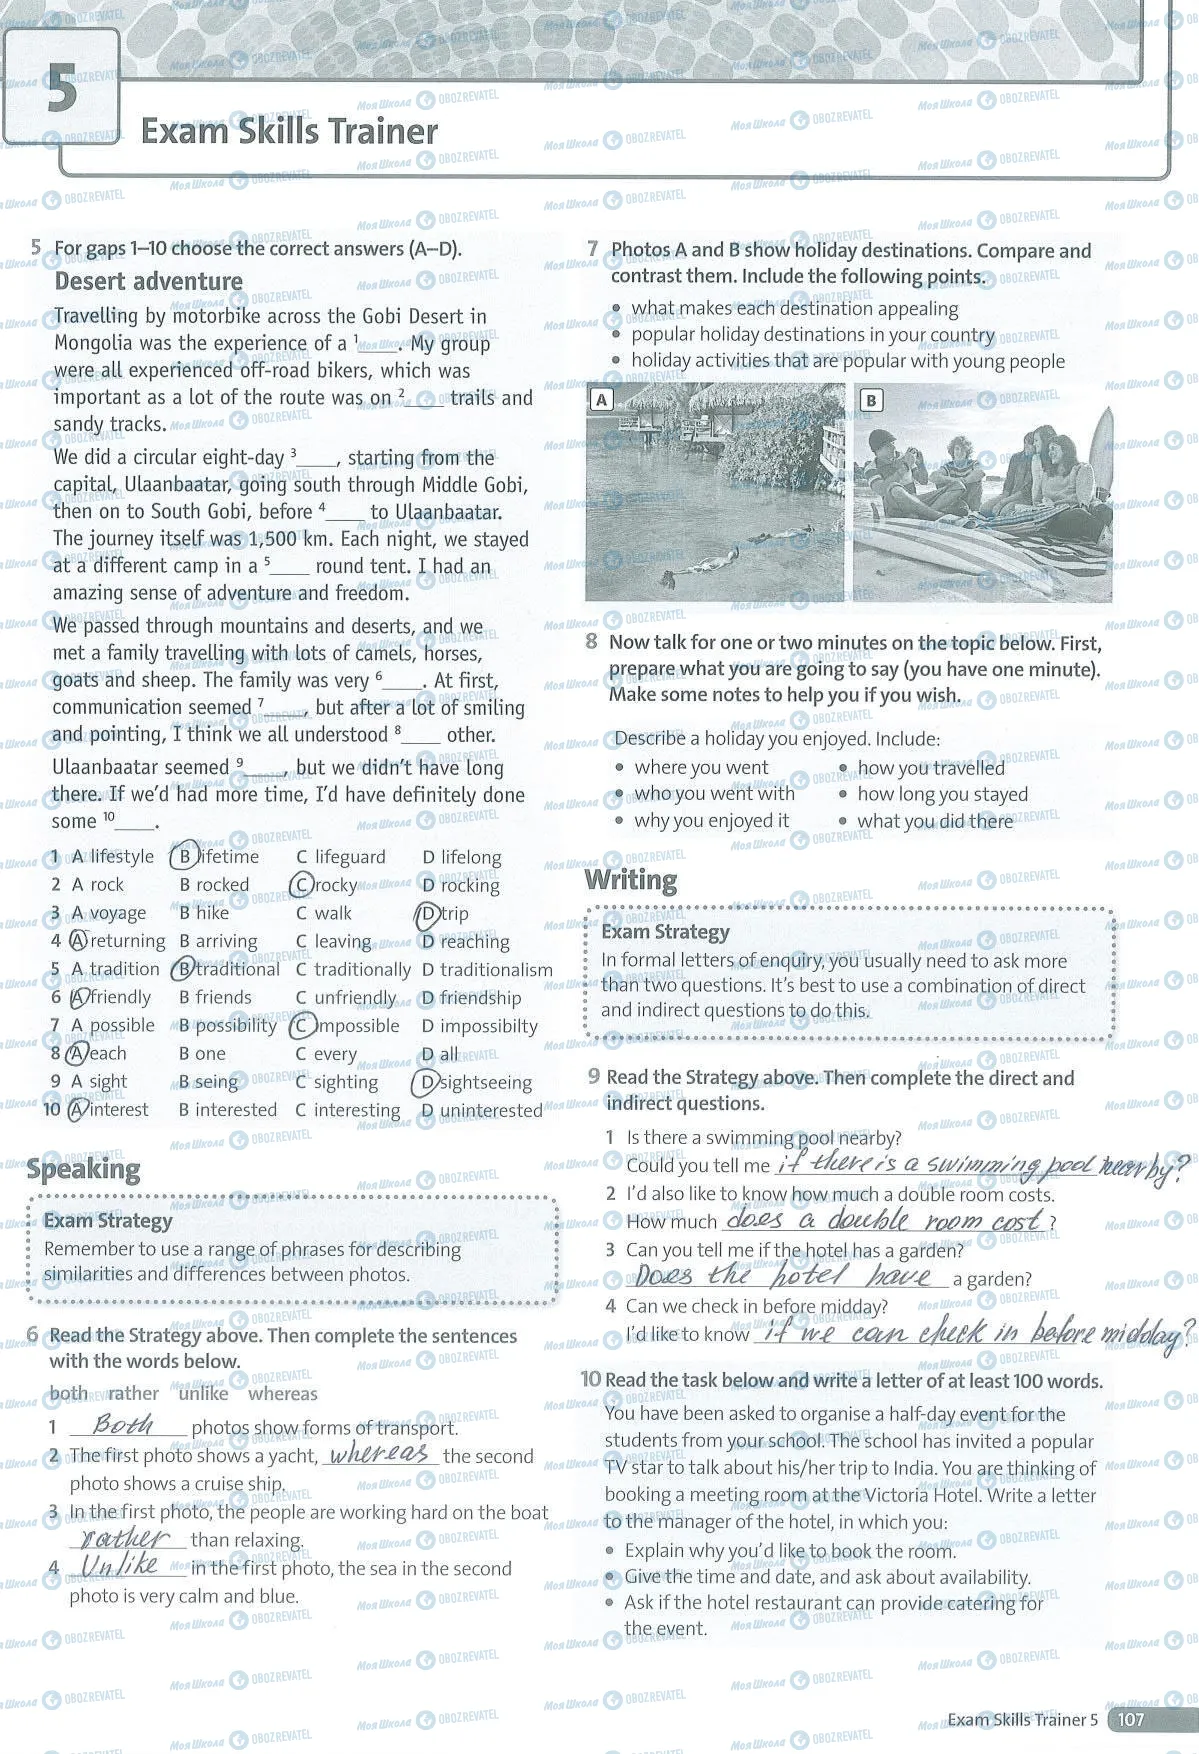 5
Exam Skills Trainer
5 For gaps 1–10 choose the correct answers (A–D).
Desert adventure
Travelling by motorbike across the Gobi Desert in
Mongolia was the experience of a 1____. My group
were all experienced off-road bikers, which was
important as a lot of the route was on 2____ trails and
sandy tracks.
We did a circular eight-day 3____, starting from the
capital, Ulaanbaatar, going south through Middle Gobi,
then on to South Gobi, before 4____ to Ulaanbaatar.
The journey itself was 1,500 km. Each night, we stayed
at a different camp in a 5____ round tent. I had an
amazing sense of adventure and freedom.
We passed through mountains and deserts, and we
met a family travelling with lots of camels, horses,
goats and sheep. The family was very 6____. At first,
communication seemed 7____, but after a lot of smiling
and pointing, I think we all understood 8____ other.
Ulaanbaatar seemed 9____, but we didn't have long
there. If we'd had more time, I'd have definitely done
some 10____.
1 A lifestyle B lifetime C lifeguard D lifelong
2 A rock B rocked C rocky D rocking
3 A voyage B hike C walk D trip
4 A returning B arriving C leaving D reaching
5 A tradition B traditional C traditionally D traditionalism
6 A friendly B friends C unfriendly D friendship
7 A possible B possibility C impossible D impossibilty
8 A each B one C every D all
9 A sight B seing C sighting D sightseeing
10 A interest B interested C interesting D uninterested
Speaking
Exam Strategy
Remember to use a range of phrases for describing
similarities and differences between photos.
6 Read the Strategy above. Then complete the sentences
with the words below.
both rather unlike whereas
1 Both photos show forms of transport.
2 The first photo shows a yacht, whereas the second
photo shows a cruise ship.
3 In the first photo, the people are working hard on the boat
rather than relaxing.
4 Unlike in the first photo, the sea in the second
photo is very calm and blue.
7 Photos A and B show holiday destinations. Compare and
contrast them. Include the following points.
• what makes each destination appealing
• popular holiday destinations in your country
• holiday activities that are popular with young people
A B
8 Now talk for one or two minutes on the topic below. First,
prepare what you are going to say (you have one minute).
Make some notes to help you if you wish.
Describe a holiday you enjoyed. Include:
• where you went • how you travelled
• who you went with • how long you stayed
• why you enjoyed it • what you did there
Writing
Exam Strategy
In formal letters of enquiry, you usually need to ask more
than two questions. It's best to use a combination of direct
and indirect questions to do this.
9 Read the Strategy above. Then complete the direct and
indirect questions.
1 Is there a swimming pool nearby?
Could you tell me if there is a swimming pool nearby?
2 I'd also like to know how much a double room costs.
How much does a double room cost?
3 Can you tell me if the hotel has a garden?
Does the hotel have a garden?
4 Can we check in before midday?
I'd like to know if we can check in before midday?
10 Read the task below and write a letter of at least 100 words.
You have been asked to organise a half-day event for the
students from your school. The school has invited a popular
TV star to talk about his/her trip to India. You are thinking of
booking a meeting room at the Victoria Hotel. Write a letter
to the manager of the hotel, in which you:
• Explain why you'd like to book the room.
• Give the time and date, and ask about availability.
• Ask if the hotel restaurant can provide catering for
the event.
Exam Skills Trainer 5 107
Моя Школа OBOZREVATEL